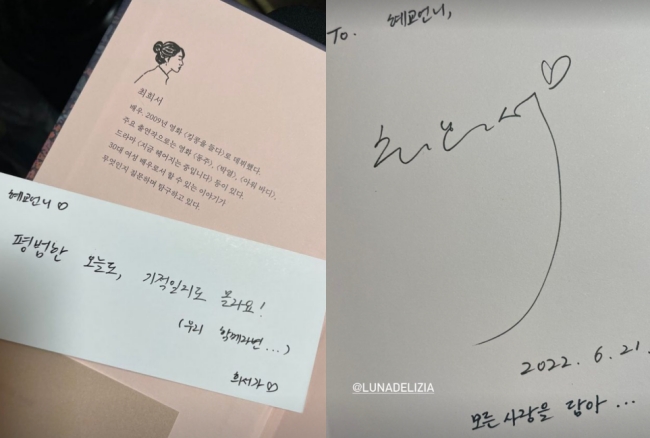 최희서
배우. 2009년 영화 <킹콩을 들다>로 데뷔했다.
주요 출연작으로는 영화 <동주>, <박열>, <아워 바디>,
드라마 <지금 헤어지는 중입니다> 등이 있다.
30대 여성 배우로서 할 수 있는 이야기가
무엇인지 질문하며 탐구하고 있다.
혜교언니♡
평범한 오늘도, 기적일지도 몰라요!
(우리 함께라면...)
희서가♡
To. 혜교언니,
최희서♡
@LUNADELIZIA
2022. 6. 21.
모든 사랑을 담아...